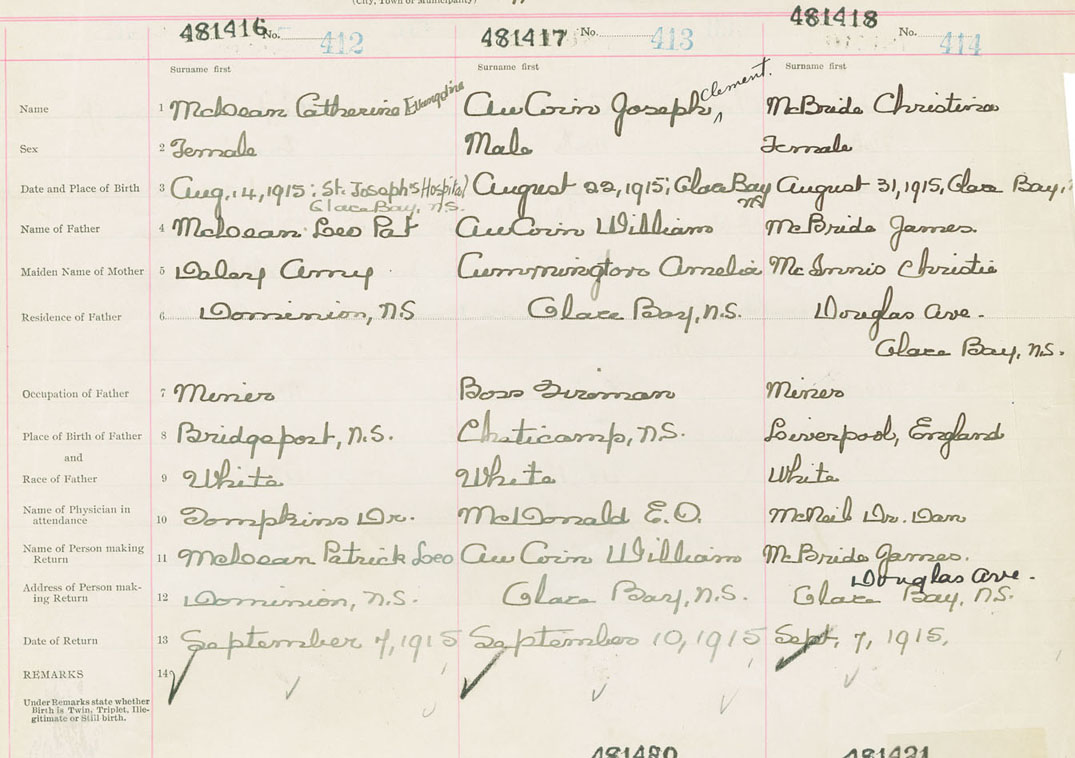 (City, Town or Municipality)
481416 No. 412
481417 No. 413
481418 No. 414
Surname first Surname first Surname first
Name 1 McLean Catherine Evangeline AuCoin Joseph ^ Clement. McBride Christina
Sex 2 Female Male Female
Date and Place of Birth 3 Aug. 14, 1915; St. Joseph's Hospital August 22, 1915; Glace Bay August 31, 1915, Glace Bay,
Glace Bay, N.S. NS
Name of Father 4 McLean Leo Pat AuCoin William McBride James.
Maiden Name of Mother 5 Daley Amy Cummington Amelia McInnis Christie
Residence of Father 6 Dominion, NS Glace Bay, N.S. Douglas Ave.
Glace Bay, N.S.
Occupation of Father 7 Miner Boss Fireman Miner
Place of Birth of Father 8 Bridgeport, N.S. Cheticamp, N.S. Liverpool, England
and
Race of Father 9 White White White
Name of Physician in attendance 10 Tompkins Dr. McDonald E.O. McNeil Dr. Dan
Name of Person making Return 11 McLean Patrick Leo AuCoin William McBride James.
Douglas Ave.
Address of Person making Return 12 Dominion, N.S. Glace Bay, N.S. Glace Bay, N.S.
Date of Return 13 September 7, 1915 September 10, 1915 Sept. 7, 1915,
REMARKS 14
Under Remarks state whether
Birth is Twin, Triplet, Ille-
gitimate or Still birth.
481420 481421